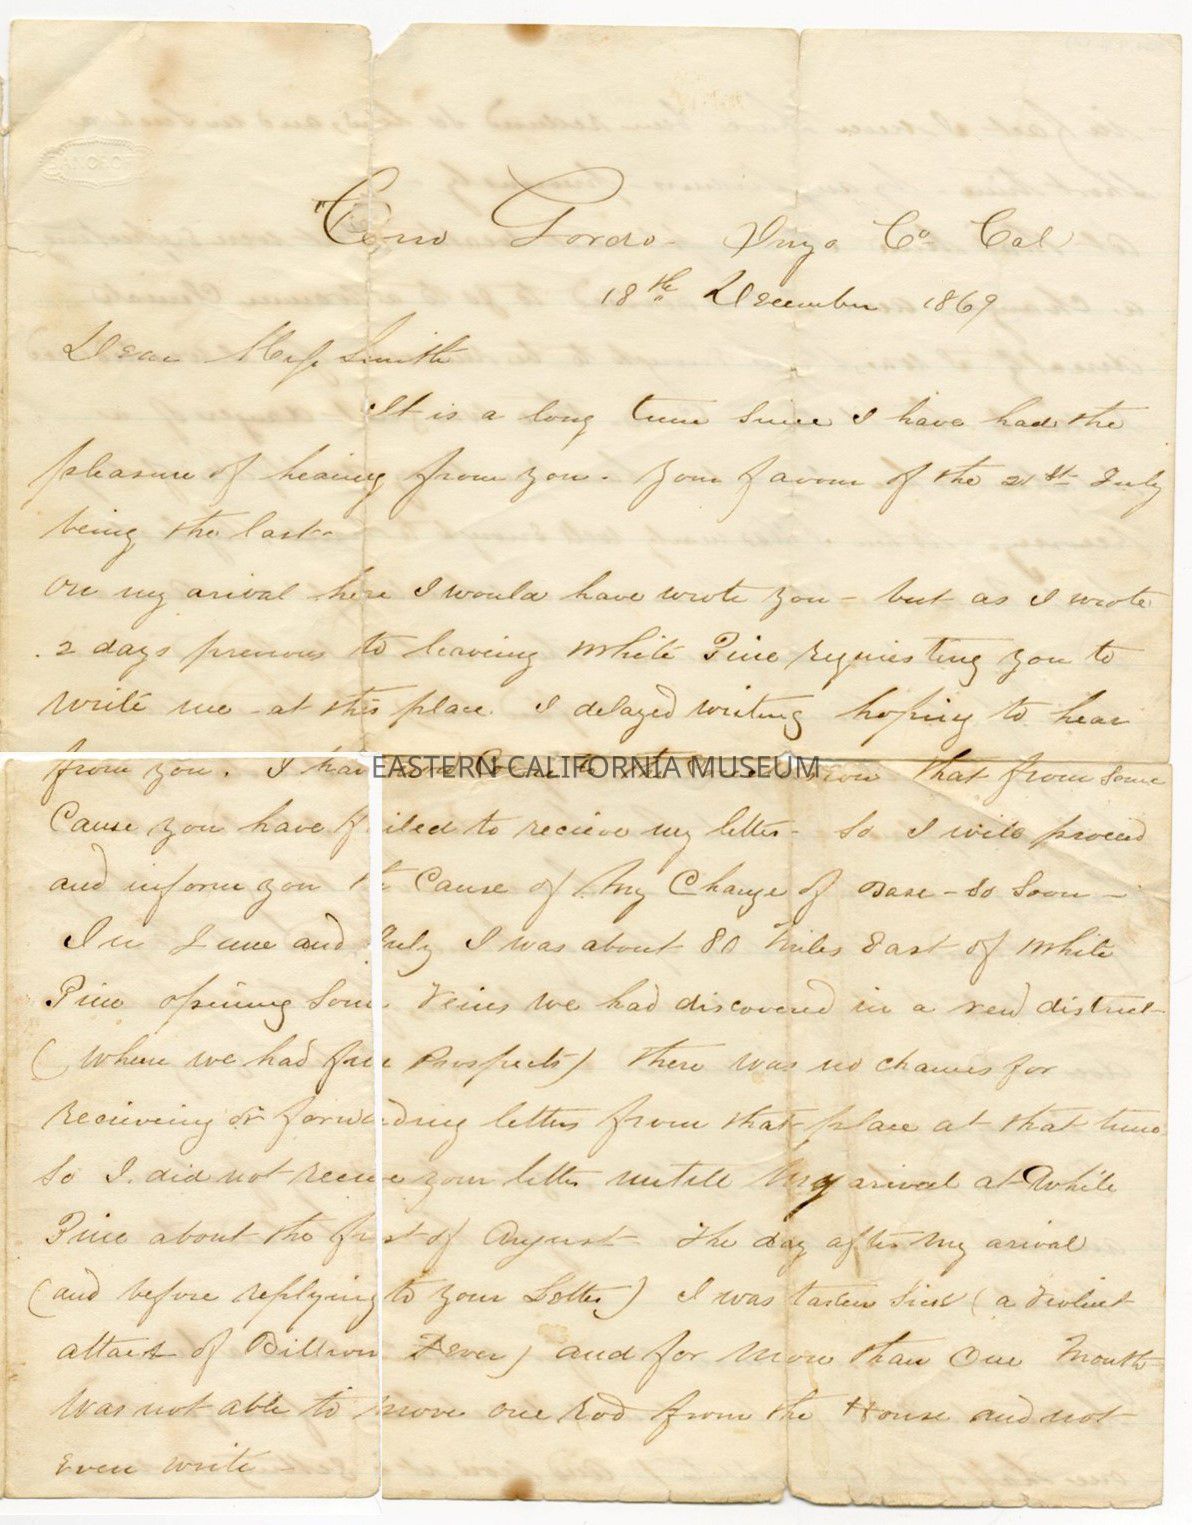 BANCROFT
"Cerro Gordo- Inyo Co Cal
18th December 1869
Dear Miss Smith
It is a long time since I have had the
pleasure of hearing from you. Your favour of the 21st July
being the last-
On my arival here I would have wrote you - but as I wrote
2 days previous to leaveing White Pine requiesting you to
write me at this place. I delayed writing hoping to hear
from you. I have that from some
EASTERN CALIFORNIA MUSEUM
Cause you have failed to recieve my letter- So I will proceed
and inform you the Cause of My Change of Base - So Soon -
In June and July I was about 80 Miles East of White
Pine opening Some Veins we had discovered in a new district-
(where we had fair Prospects) there was no chances for
recieveing or forwarding letters from that place at that time
So I did not recieve your letter untill My arival at White
Pine about the first of August- The day after my arival
(and before replying to your Letter) I was taken Sick (a violent
attact of Billious Fever) and for more than One Month
was not able to move one rod from the House and not
Even write -